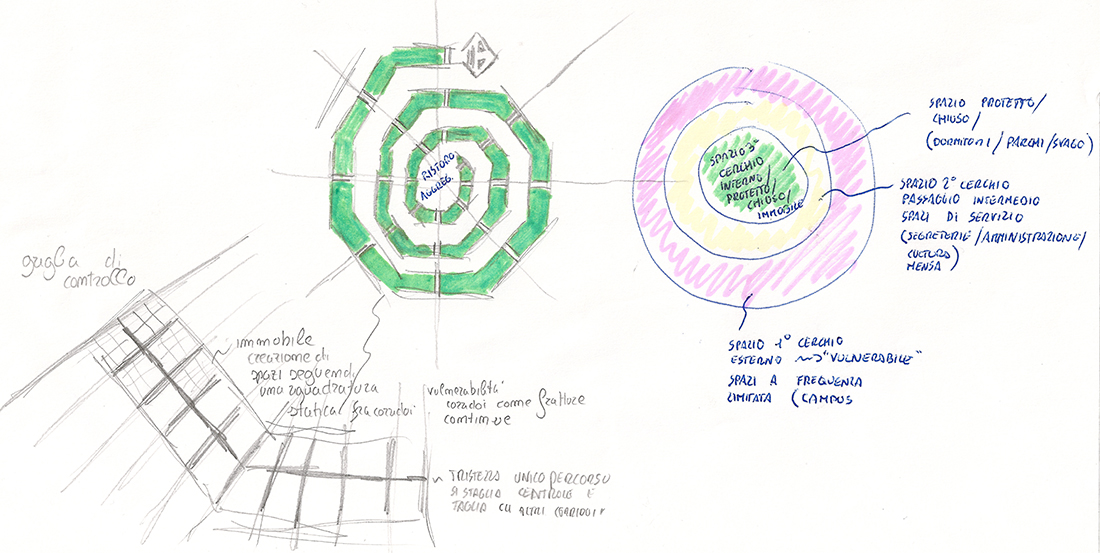 RISTORO
AGGREG.
SPAZIO 3°
CERCHIO
INTERNO/
PROTETTO/
CHIUSO/
IMMOBILE
SPAZIO PROTETTO/
CHIUSO/
(DORMITORI / PARCHI/SVAGO)
SPAZIO 2° CERCHIO
PASSAGGIO INTERMEDIO
SPAZI DI SERVIZIO
(SEGRETERIE/AMMINISTRAZIONE/
CULTURA)
MENSA
SPAZIO 1° CERCHIO
ESTERNO "VULNERABILE"
SPAZI A FREQUENZA
LIMITATA (CAMPUS
griglia di
controllo
immobile
creazione di
spazi seguendo
una squadratura
statica fra corridoi
vulnerabilità
corridoi come fratture
continue
TRISTEZZA UNICO PERCORSO
SI STAGLIA CENTRALE E
TAGLIA GLI ALTRI CORRIDOI